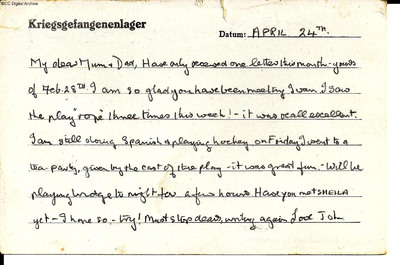 IBCC Digital Archive
Kriegsgefangenenlager
Datum: APRIL 24TH.
My dear Mum & Dad, Have only received one letter this month - yours
of Feb. 28TH. I am so glad you have been meeting Iwan I saw
the play "rope" three times this week! - it was really excellent.
I am still doing Spanish & playing hockey on Friday I went to a
tea-party, given by the cast of the play - it was great fun. - Will be
playing bridge to night for a few hours. Have you met SHEILA
yet - I hope so, - try! Must stop dears, writing again Love John